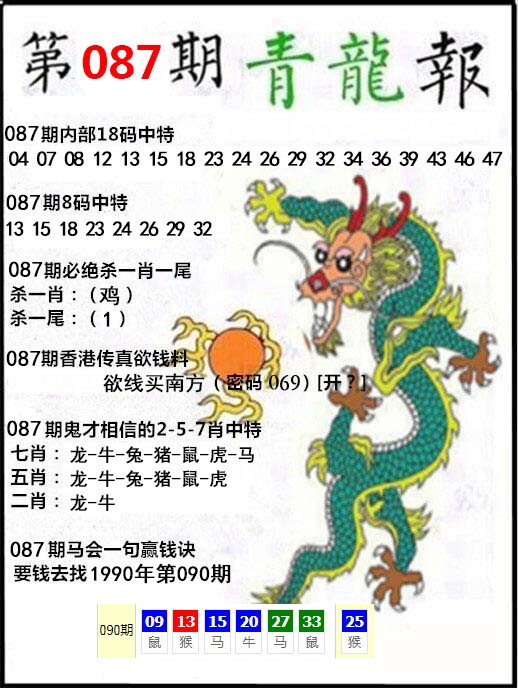 第087期 青龍報
087期内部18码中特
04 07 08 12 13 15 18 23 24 26 29 32 34 36 39 43 46 47
087期8码中特
13 15 18 23 24 26 29 32
087期必绝杀一肖一尾
杀一肖：（鸡）
杀一尾：（1）
087期香港传真欲钱料
欲线买南方（密码 069）[开？]
087期鬼才相信的2-5-7肖中特
七肖：龙-牛-兔-猪-鼠-虎-马
五肖：龙-牛-兔-猪-鼠-虎
二肖：龙-牛
087期马会一句赢钱诀
要钱去找1990年第090期
090期 09 13 15 20 27 33 25
鼠 猴 马 牛 马 鼠 猴